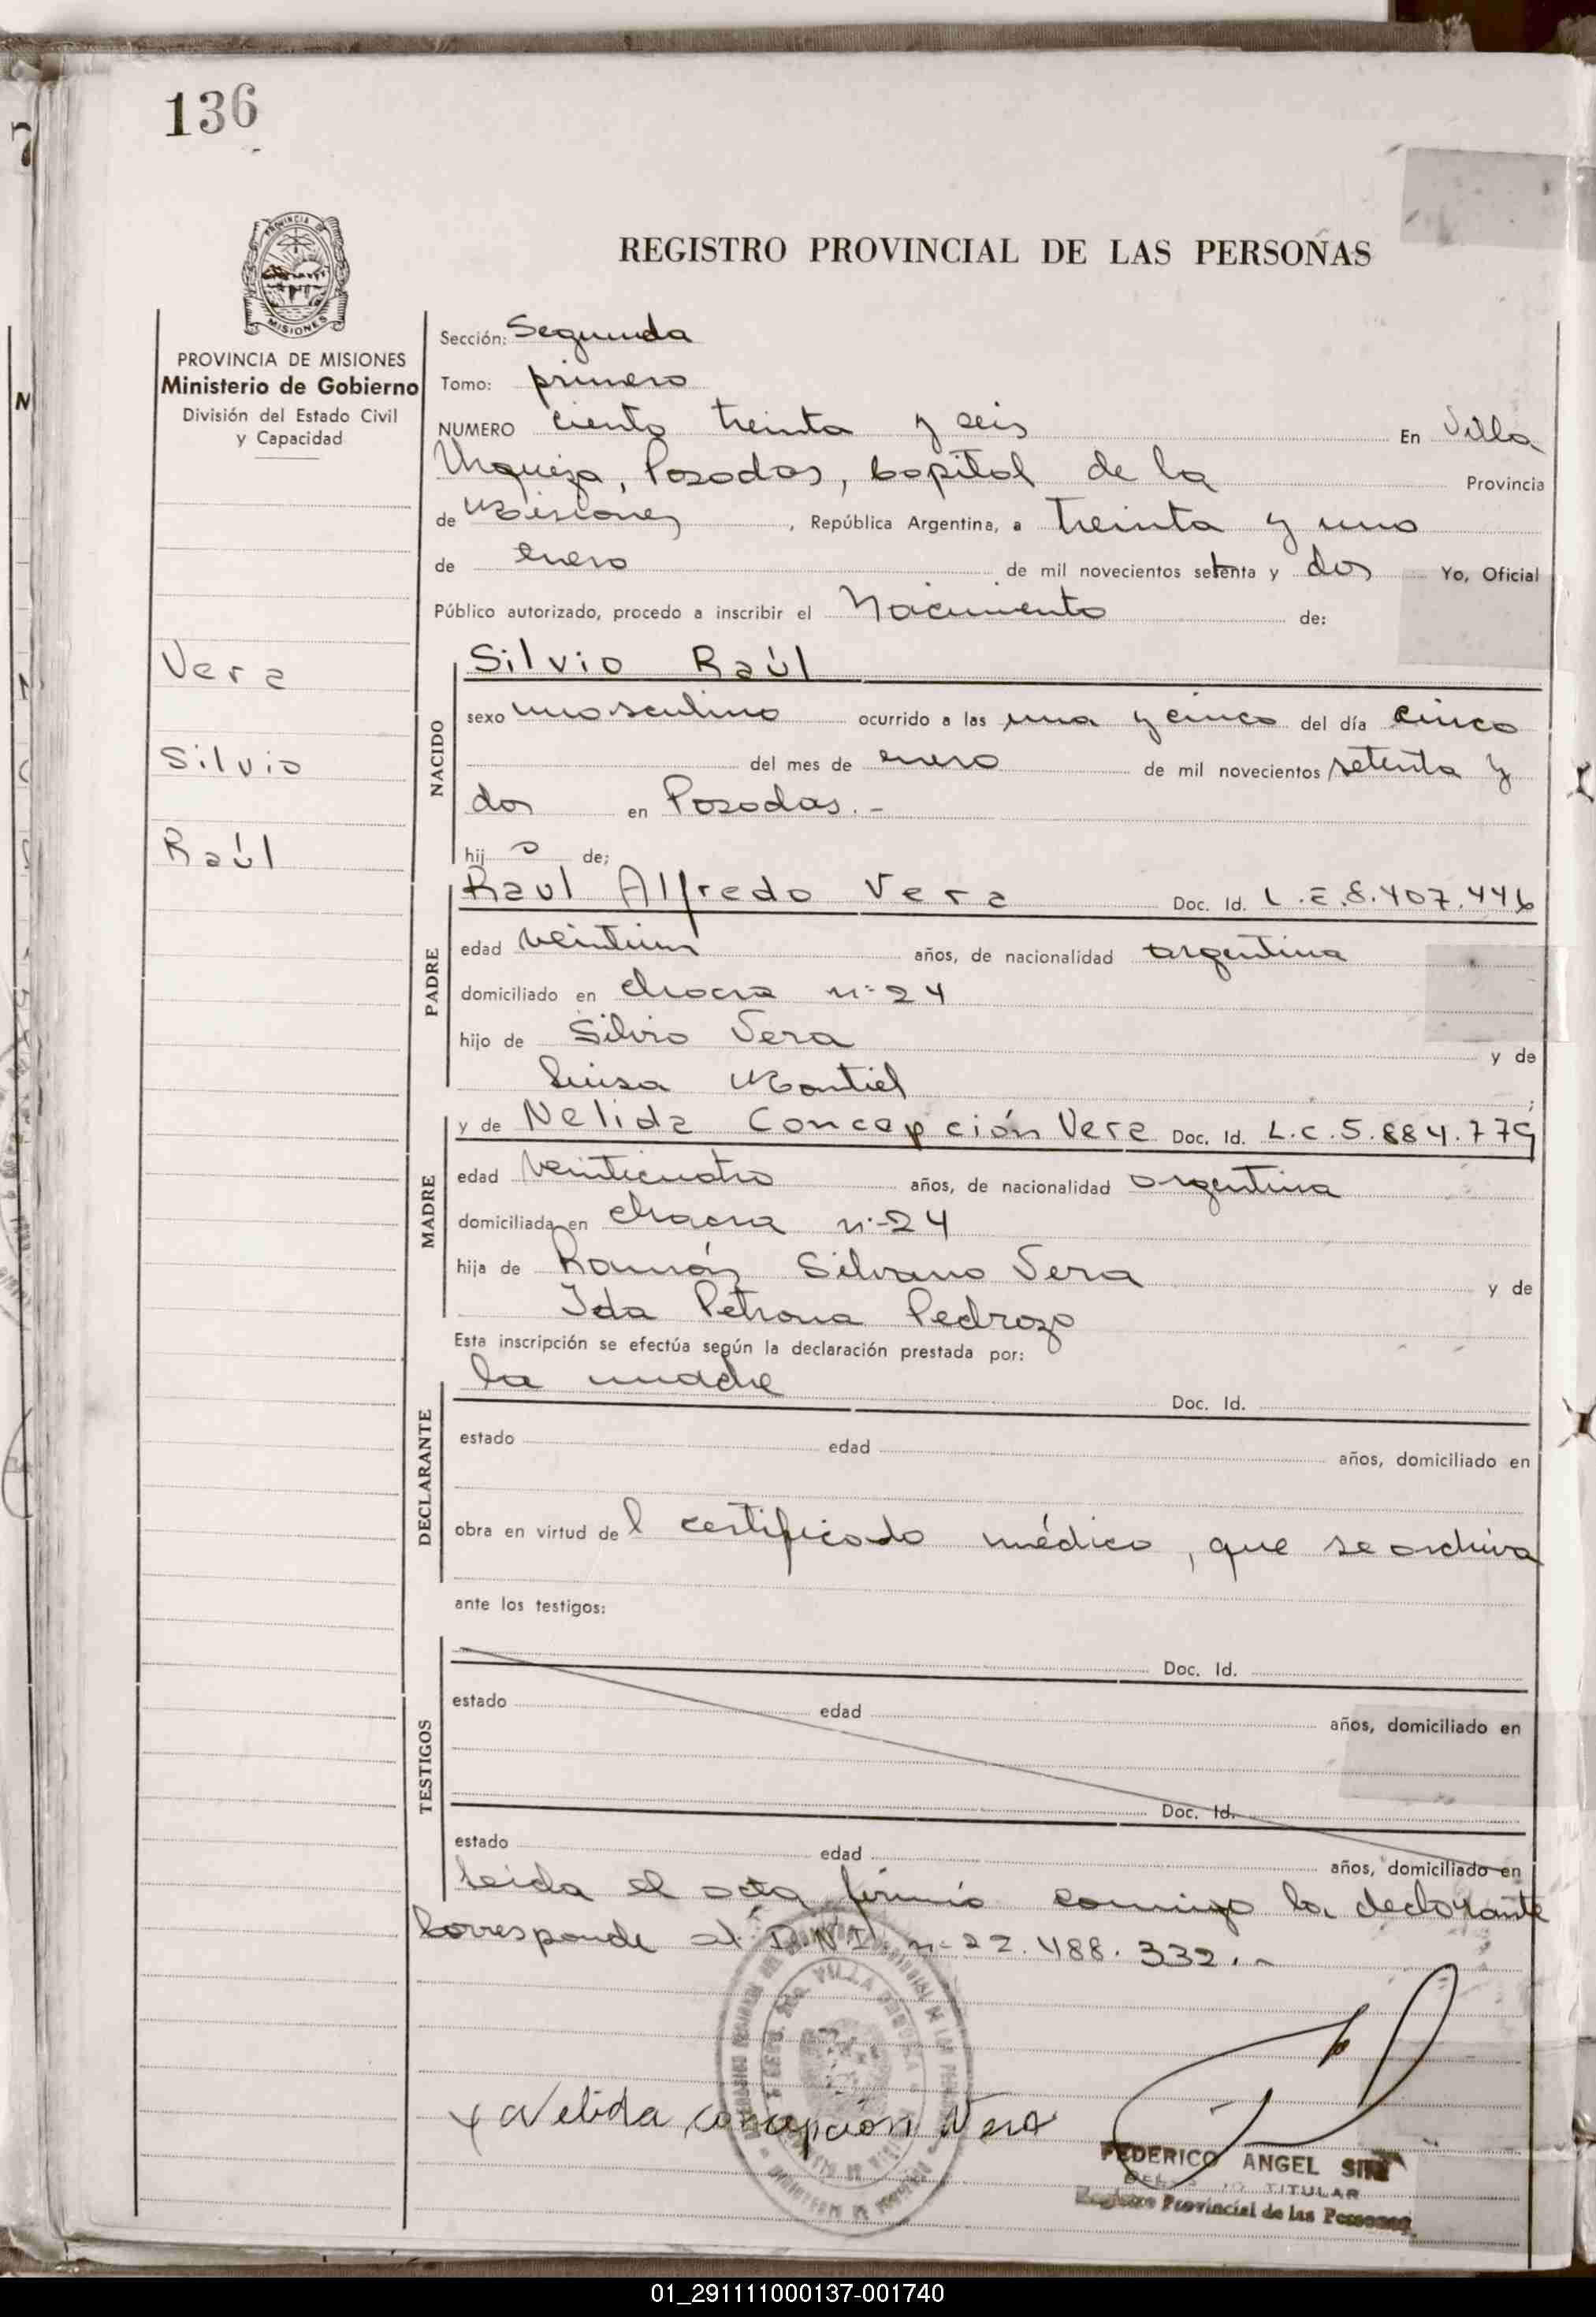 136
REGISTRO PROVINCIAL DE LAS PERSONAS
PROVINCIA DE MISIONES
Ministerio de Gobierno
División del Estado Civil
y Capacidad
Vera
Silvio
Raúl
Sección: Segunda
Tomo: primero
NUMERO ciento treinta y seis En Villa
Urquiza, Posadas, Capital de la Provincia
de Misiones, República Argentina, a treinta y uno
de enero de mil novecientos setenta y dos Yo, Oficial
Público autorizado, procedo a inscribir el Nacimiento de:
NACIDO
Silvio Raúl
sexo masculino ocurrido a las una y cinco del día cinco
del mes de enero de mil novecientos setenta y
dos en Posadas.-
hijo de;
PADRE
Raul Alfredo Vera Doc. Id. L.E.8.407.446
edad veintiun años, de nacionalidad argentina
domiciliado en chacra nº 24
hijo de Silvio Vera y de
Luisa Montiel;
MADRE
y de Nelida Concepción Vera Doc. Id. L.C.5.884.779
edad veinticuatro años, de nacionalidad argentina
domiciliada en chacra nº 24
hija de Ramón Silvano Vera y de
Ida Petrona Pedrozo
Esta inscripción se efectúa según la declaración prestada por:
DECLARANTE
la madre Doc. Id.
estado edad años, domiciliado en
obra en virtud del certificado médico, que se archiva
ante los testigos:
TESTIGOS
Doc. Id.
estado edad años, domiciliado en
Doc. Id.
estado edad años, domiciliado en
Leida el acta firmó conmigo la declarante
Corresponde al D.N.I. nº 22.488.332.-
VILLA
x Nelida Concepción Vera
FEDERICO ANGEL
TITULAR
Registro Provincial de las Personas
01_291111000137-001740